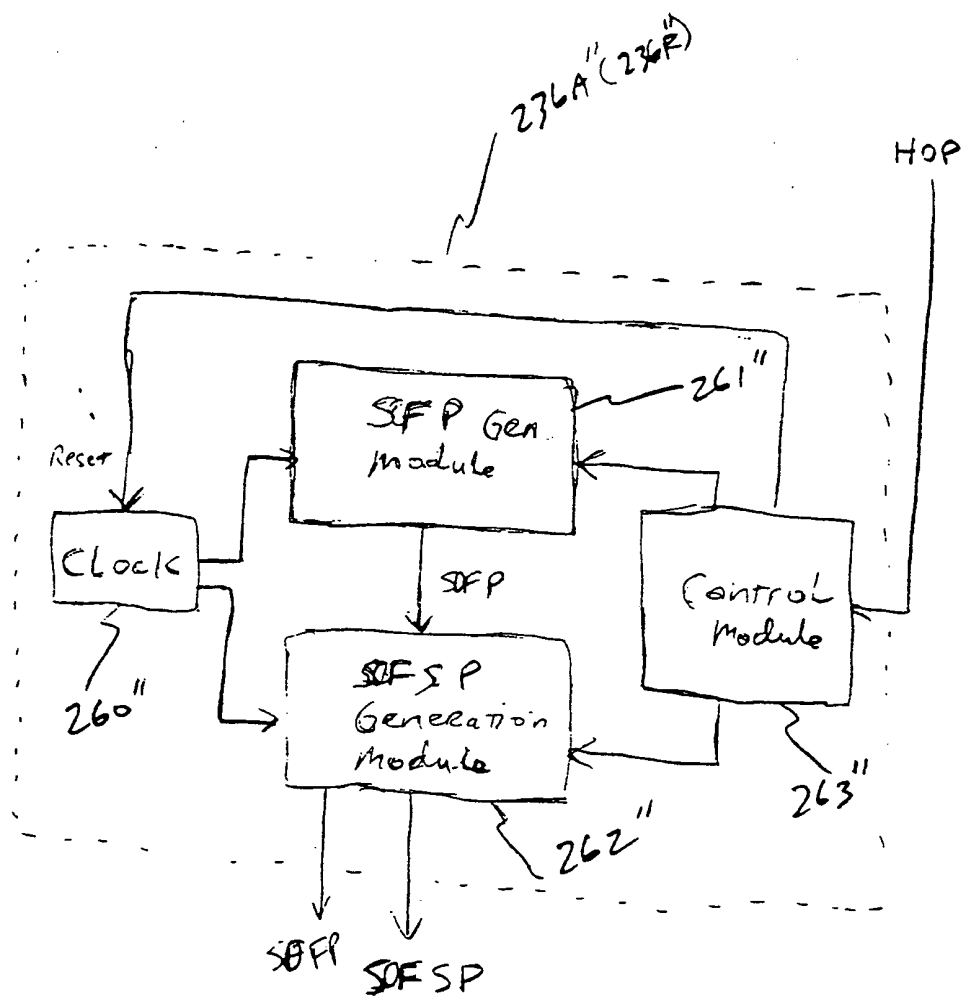 236A" (236R")
HOP
261"
SOFP Gen.
Module
Reset
Clock
SOFP
Control
Module
SOFSP
Generation
Module
260"
263"
262"
SOFP
SOFSP